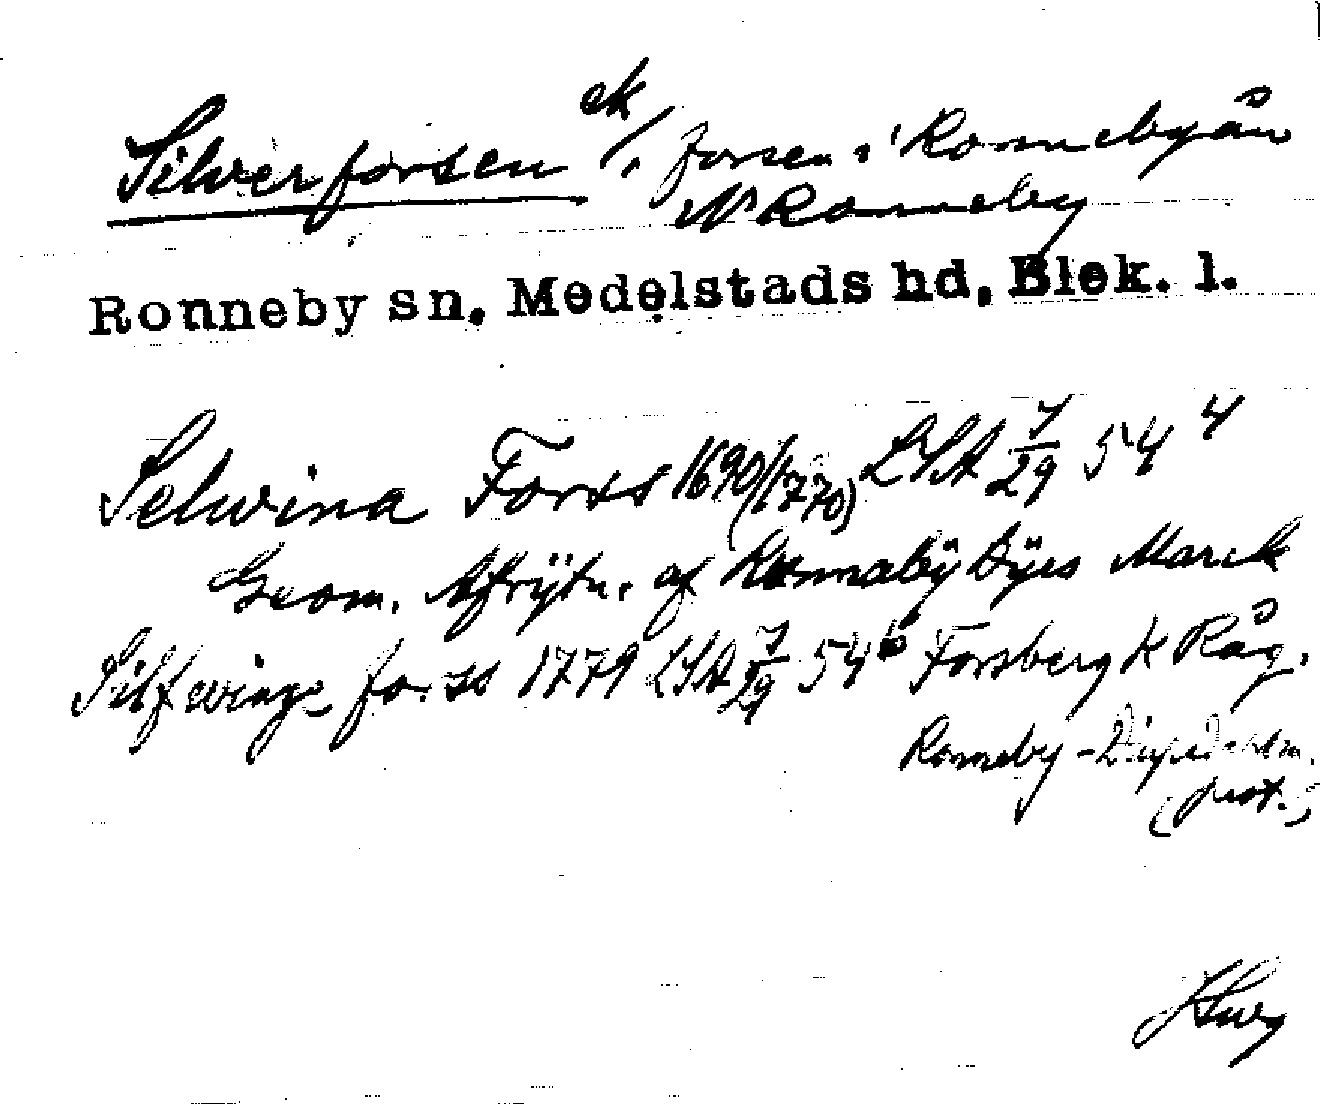 Silverforsen ek/, forsen i Ronnebyån
N Ronneby
Ronneby sn, Medelstads hd, Blek. l.
Selwina Forss 1690/(1770) LSA 7/29 54 4
Geom. Afrijtn. af Runnabÿ Bÿes Marck
Silfwings forss 1779 LSA 7/29 54 6 Forsberg k Råg.
Ronneby -
(prot.)